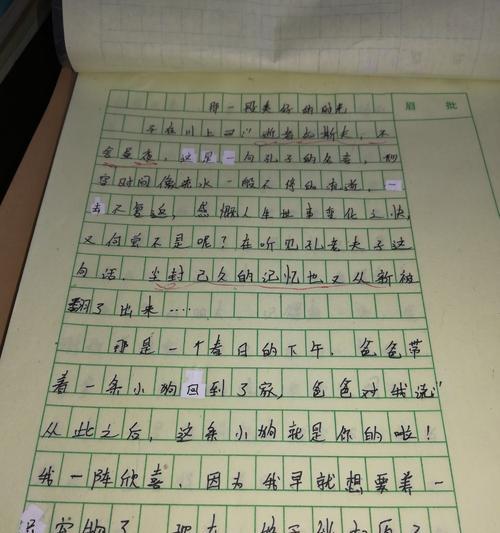 那一段美好的时光
眉 批
子在川上曰："逝者如斯夫，不
舍昼夜，这是一句孔子的名言，
时间像流水一般不停的流逝，一
去不复返，感慨人生世事变化之快，
又何尝不是呢？在听见孔老夫子这
句话，尘封已久的记忆也又从新被
翻了出来……
那是一个春日的下午，爸爸带
着一条小狗回到了家，爸爸对我说："
从此之后，这条小狗就是你的啦！
我一阵欣喜，因为我早就想要养一
宠物了